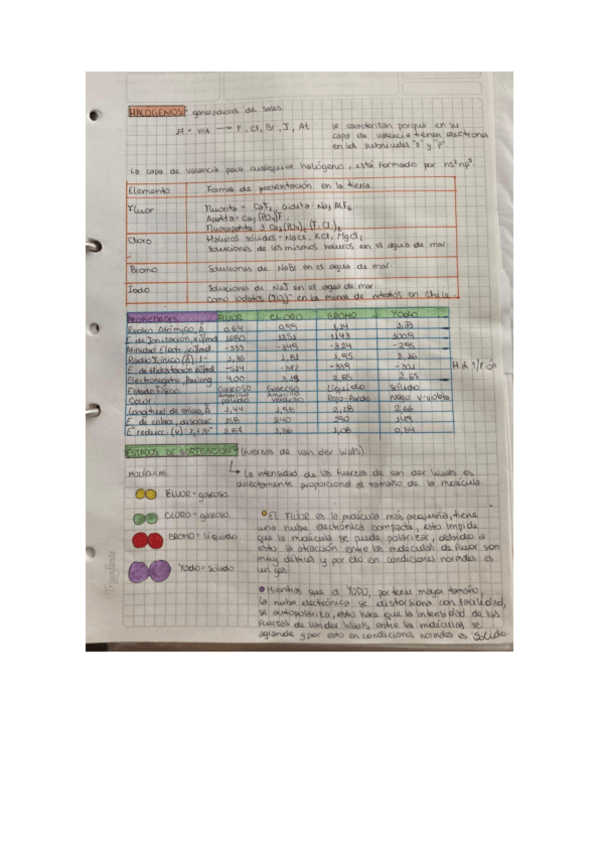 HALOGENOS: generadores de sales.
se caracterizan porque en su
VIIA → F, Cl, Br, I, At
capa de valencia tienen electrones
en los subniveles "s" y "p".
La capa de valencia para cualquier halógeno, está formado por ns² np⁵.
Elemento Formas de presentación en la tierra
Fluor Fluorita = CaF₂, criolita = Na₃AlF₆
Apatita = Ca₅(PO₄)₃F
Cloro Haluros sólidos = NaCl, KCl, MgCl₂
Soluciones de los mismos haluros en el agua de mar
Bromo Soluciones de NaBr en el agua de mar
Iodo Soluciones de NaI en el agua de mar
como iodatos (IO₃)⁻ en las minas de nitratos en Chile
PROPIEDADES FLUOR CLORO BROMO YODO
Radio Atómico, Å 0,64 0,99 1,14 1,33
E. de Ionización, KJ/mol 1680 1251 1143 1009
Afinidad Electr, KJ/mol -333 -349 -324 -295
Radio Iónico (Å) 1- 1,36 1,81 1,95 2,16
E. de Hidratación KJ/mol
Electronegativ, Pauling 4,00 2,85 2,65
Estado Físico Gaseoso Gaseoso Líquido Sólido
Color Amarillo pálido Amarillo verdoso Rojo-Pardo Negro V-violeta
Longitud de enlace, Å 1,44 1,98 2,28 2,66
E. de enlace, disociac 158
E° reducc. (v) 2,87 1,36 1,08 0,54
ESTADOS DE AGREGACIÓN (fuerzas de van der Walls)
MOLÉCULAS
→ La intensidad de las fuerzas de van der Walls es
directamente proporcional al tamaño de la molécula.
FLUOR = gaseoso
CLORO = gaseoso
BROMO = Líquido
YODO = sólido
El FLUOR es la molécula más pequeña, tiene
una nube electrónica compacta, esto impide
que la molécula se pueda polarizar, debido a
esto la atracción entre las moléculas de fluor son
muy débiles y por ello en condiciones normales es
un gas.
Mientras que el YODO, por tener mayor tamaño,
la nube electrónica se distorsiona con facilidad,
se autopolariza, esto hace que la intensidad de las
fuerzas de van der Waals entre las moléculas se
agrande y por esto en condiciones normales es sólido.